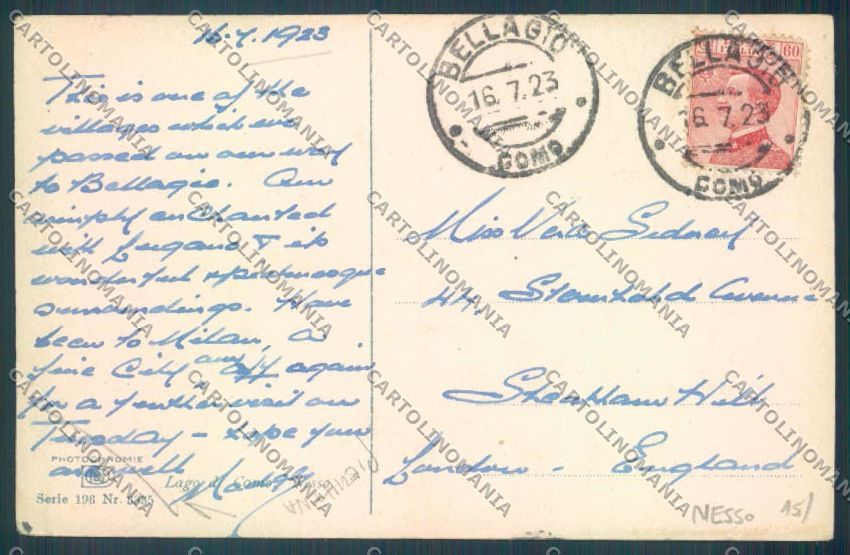 16.7.1923
This is one of the
villages which we
passed on our way
to Bellagio. Am
simply enchanted
with Lugano & its
wonderful & picturesque
surroundings. Have
been to Milan, a
fine City and off again
for a further visit on
Tuesday – hope you
are well
PHOTOCHROMIE
Lago di Como, Nesso
Serie 196 Nr.
BELLAGIO
16.7.23
COMO
BELLAGIO
16.7.23
COMO
60
Miss Vera Sidney
44, Avenue
Streatham Hill
London - England
NESSO
15/
CARTOLINOMANIA